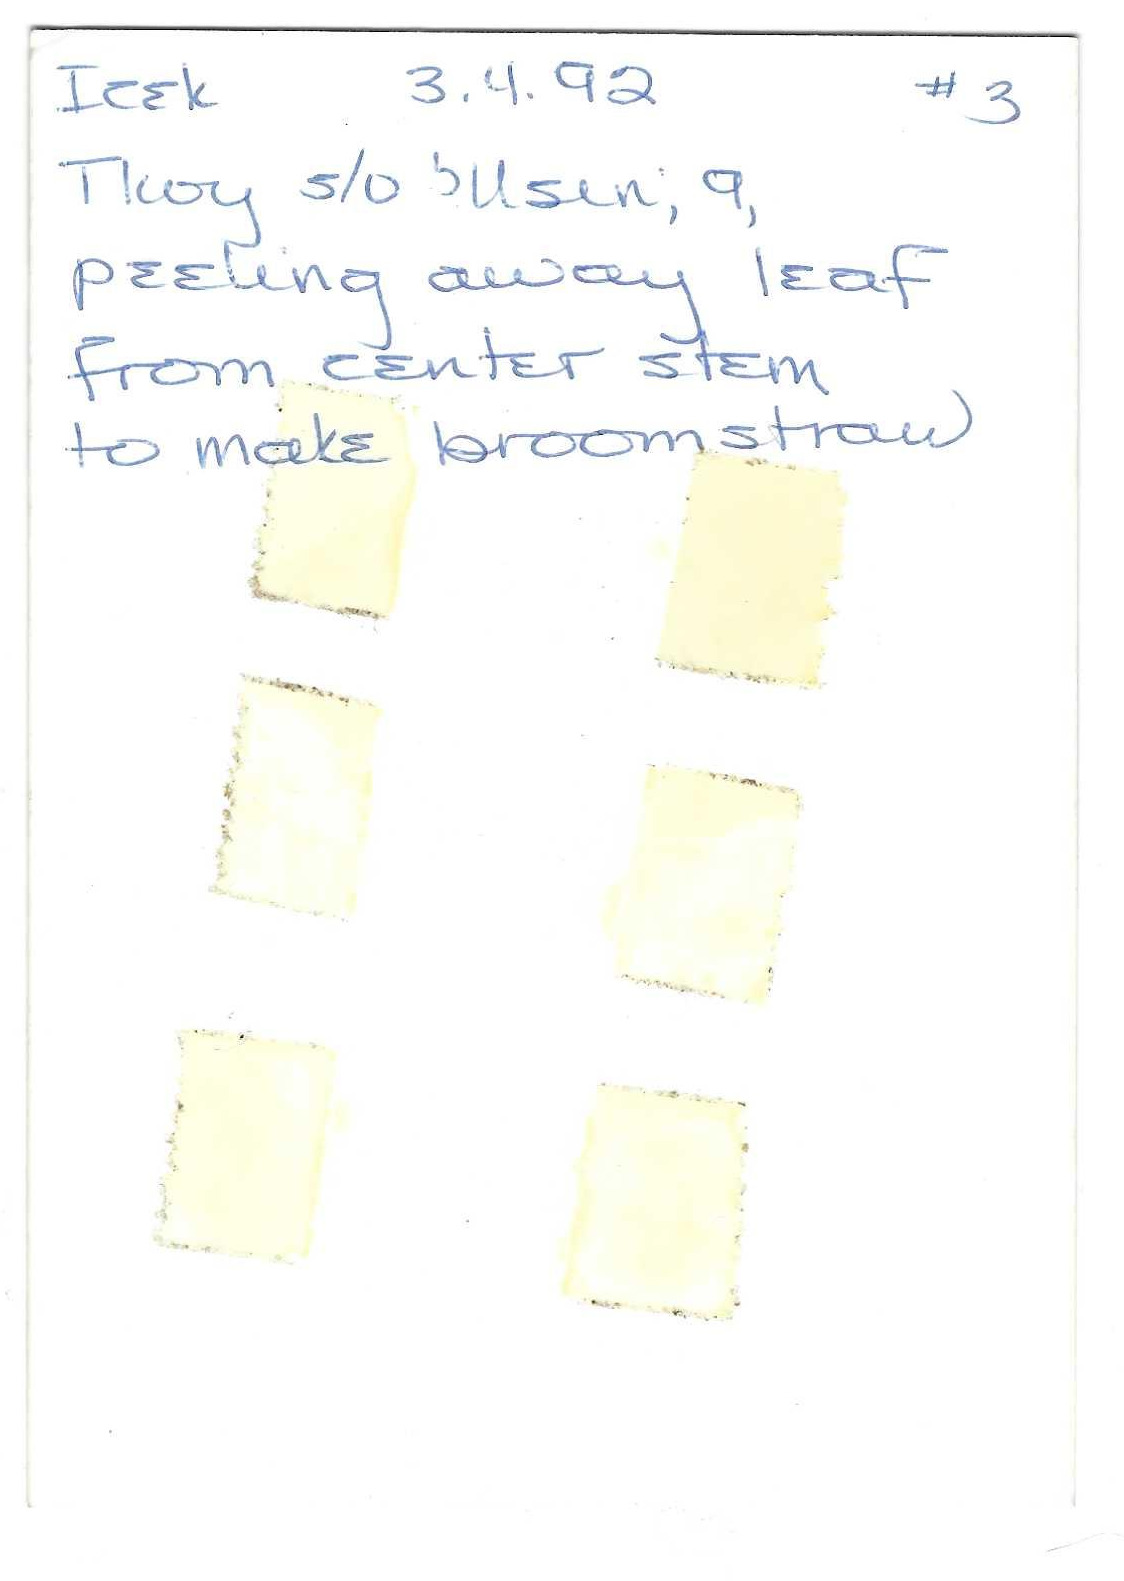 Icek 3.4.92 #3
Tkoy s/o 'Usen; 9,
peeling away leaf
from center stem
to make broomstraw